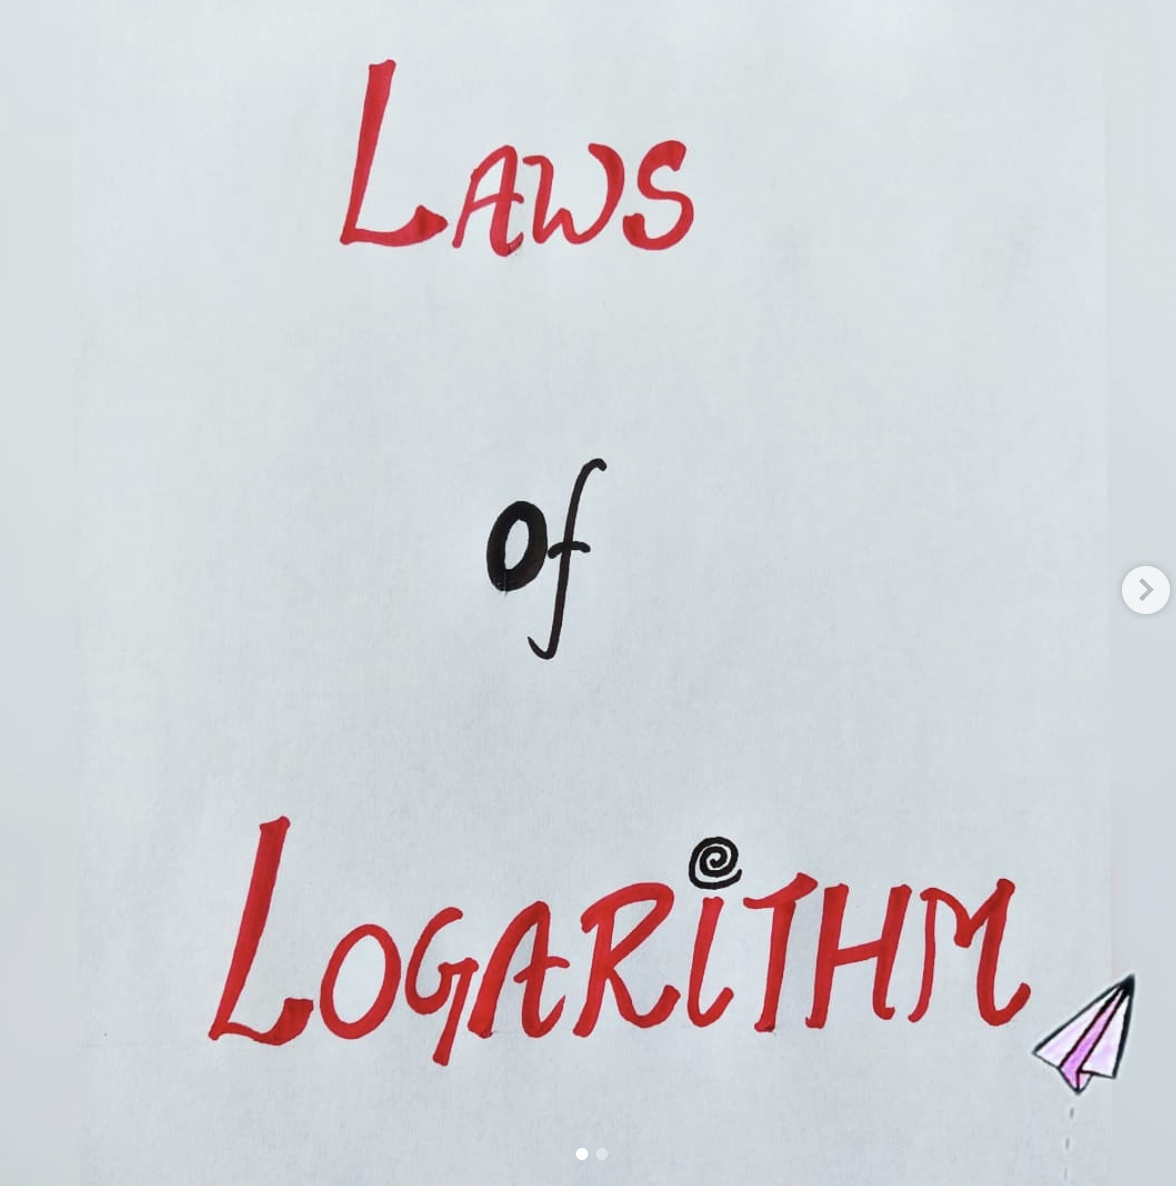 LAWS
of
LOGARiTHM